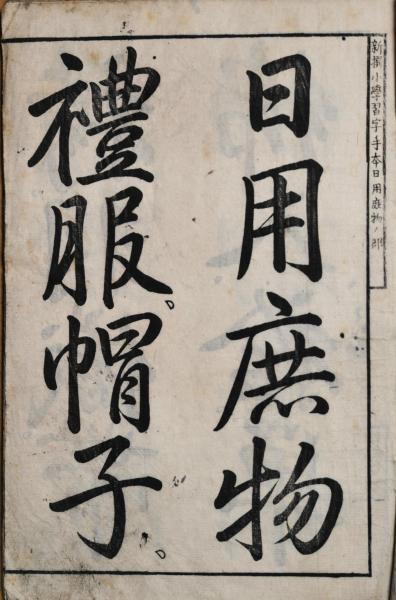 新撰小學習字手本日用庶物ノ部
日用庶物
禮服。帽子。